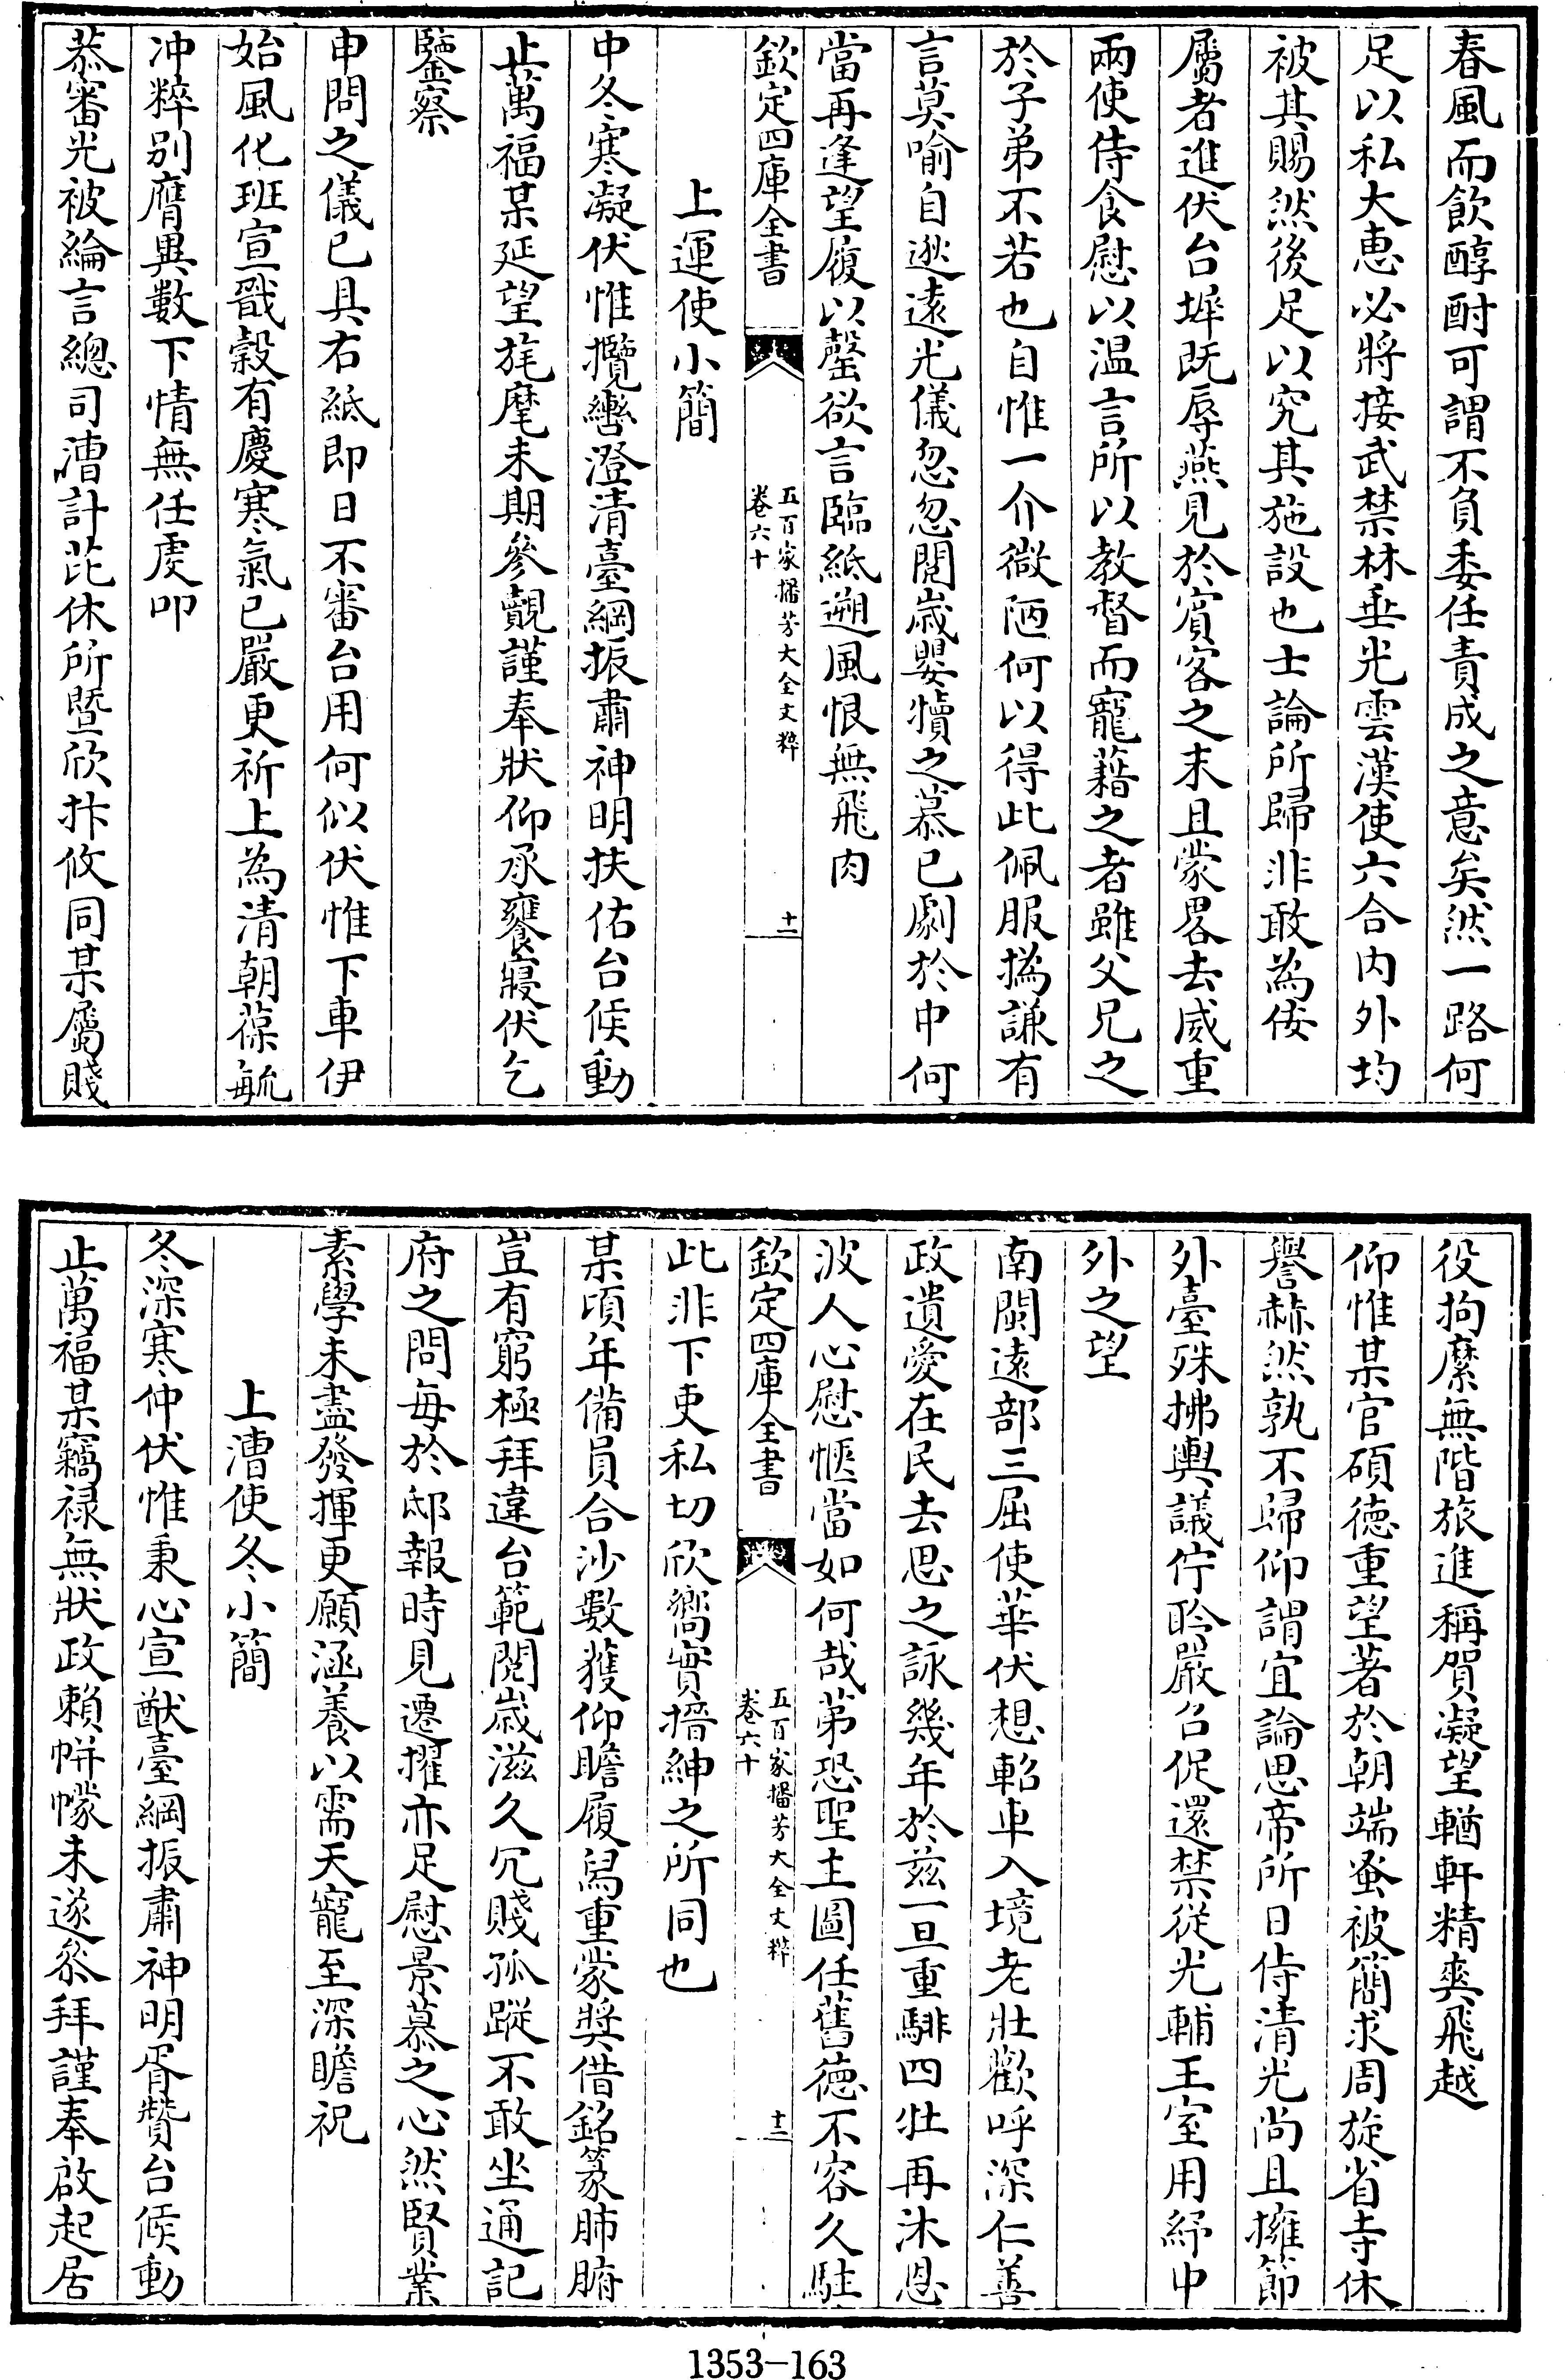 春風而飲醇酎可謂不負委任責成之意矣然一路何
足以私大惠必將接武禁林垂光雲漢使六合内外均
被其賜然後足以究其施設也士論所歸非敢為佞
屬者進伏台墀既辱燕見於賓客之末且蒙畧去威重
兩使侍食慰以温言所以教督而寵藉之者雖父兄之
於子弟不若也自惟一介微陋何以得此佩服撝謙有
言莫喻自逖遠光儀忽忽閱歲嬰犢之慕已劇於中何
當再逢望履以罄欲言臨紙遡風恨無飛肉
欽定四庫全書
五百家播芳大全文粹
卷六十
十一
上運使小簡
中冬寒凝伏惟攬轡澄清臺綱振肅神明扶佑台候動
止萬福某延望旄麾未期參覿謹奉狀仰承饔寢伏乞
鑒察
申問之儀已具右紙即日不審台用何似伏惟下車伊
始風化班宣戩穀有慶寒氣已嚴更祈上為清朝葆毓
冲粹别膺異數下情無任虔叩
恭審光被綸言總司漕計芘休所暨欣抃攸同某屬賤
役拘縻無階旅進稱賀凝望輶軒精爽飛越
仰惟某官碩德重望著於朝端蚤被簡求周旋省寺休
譽赫然孰不歸仰謂宜論思帝所日侍清光尚且擁節
外臺殊拂輿議佇聆嚴召促還禁從光輔王室用紓中
外之望
南閩遠部三屈使華伏想軺車入境老壯歡呼深仁善
政遺愛在民去思之詠幾年於兹一旦重騑四牡再沐恩
波人心慰愜當如何哉第恐聖主圖任舊德不容久駐
欽定四庫全書
五百家播芳大全文粹
卷六十
十二
此非下吏私切欣嚮實搢紳之所同也
某頃年備員合沙數獲仰瞻履舄重蒙奬借銘篆肺腑
豈有窮極拜違台範閱歲滋久冗賤孤蹤不敢坐通記
府之問每於邸報時見遷擢亦足慰景慕之心然賢業
素學未盡發揮更願涵養以需天寵至深瞻祝
上漕使冬小簡
冬深寒仲伏惟秉心宣猷臺綱振肅神明胥贊台候動
止萬福某竊禄無狀政頼帡幪未遂叅拜謹奉啟起居
1353-163